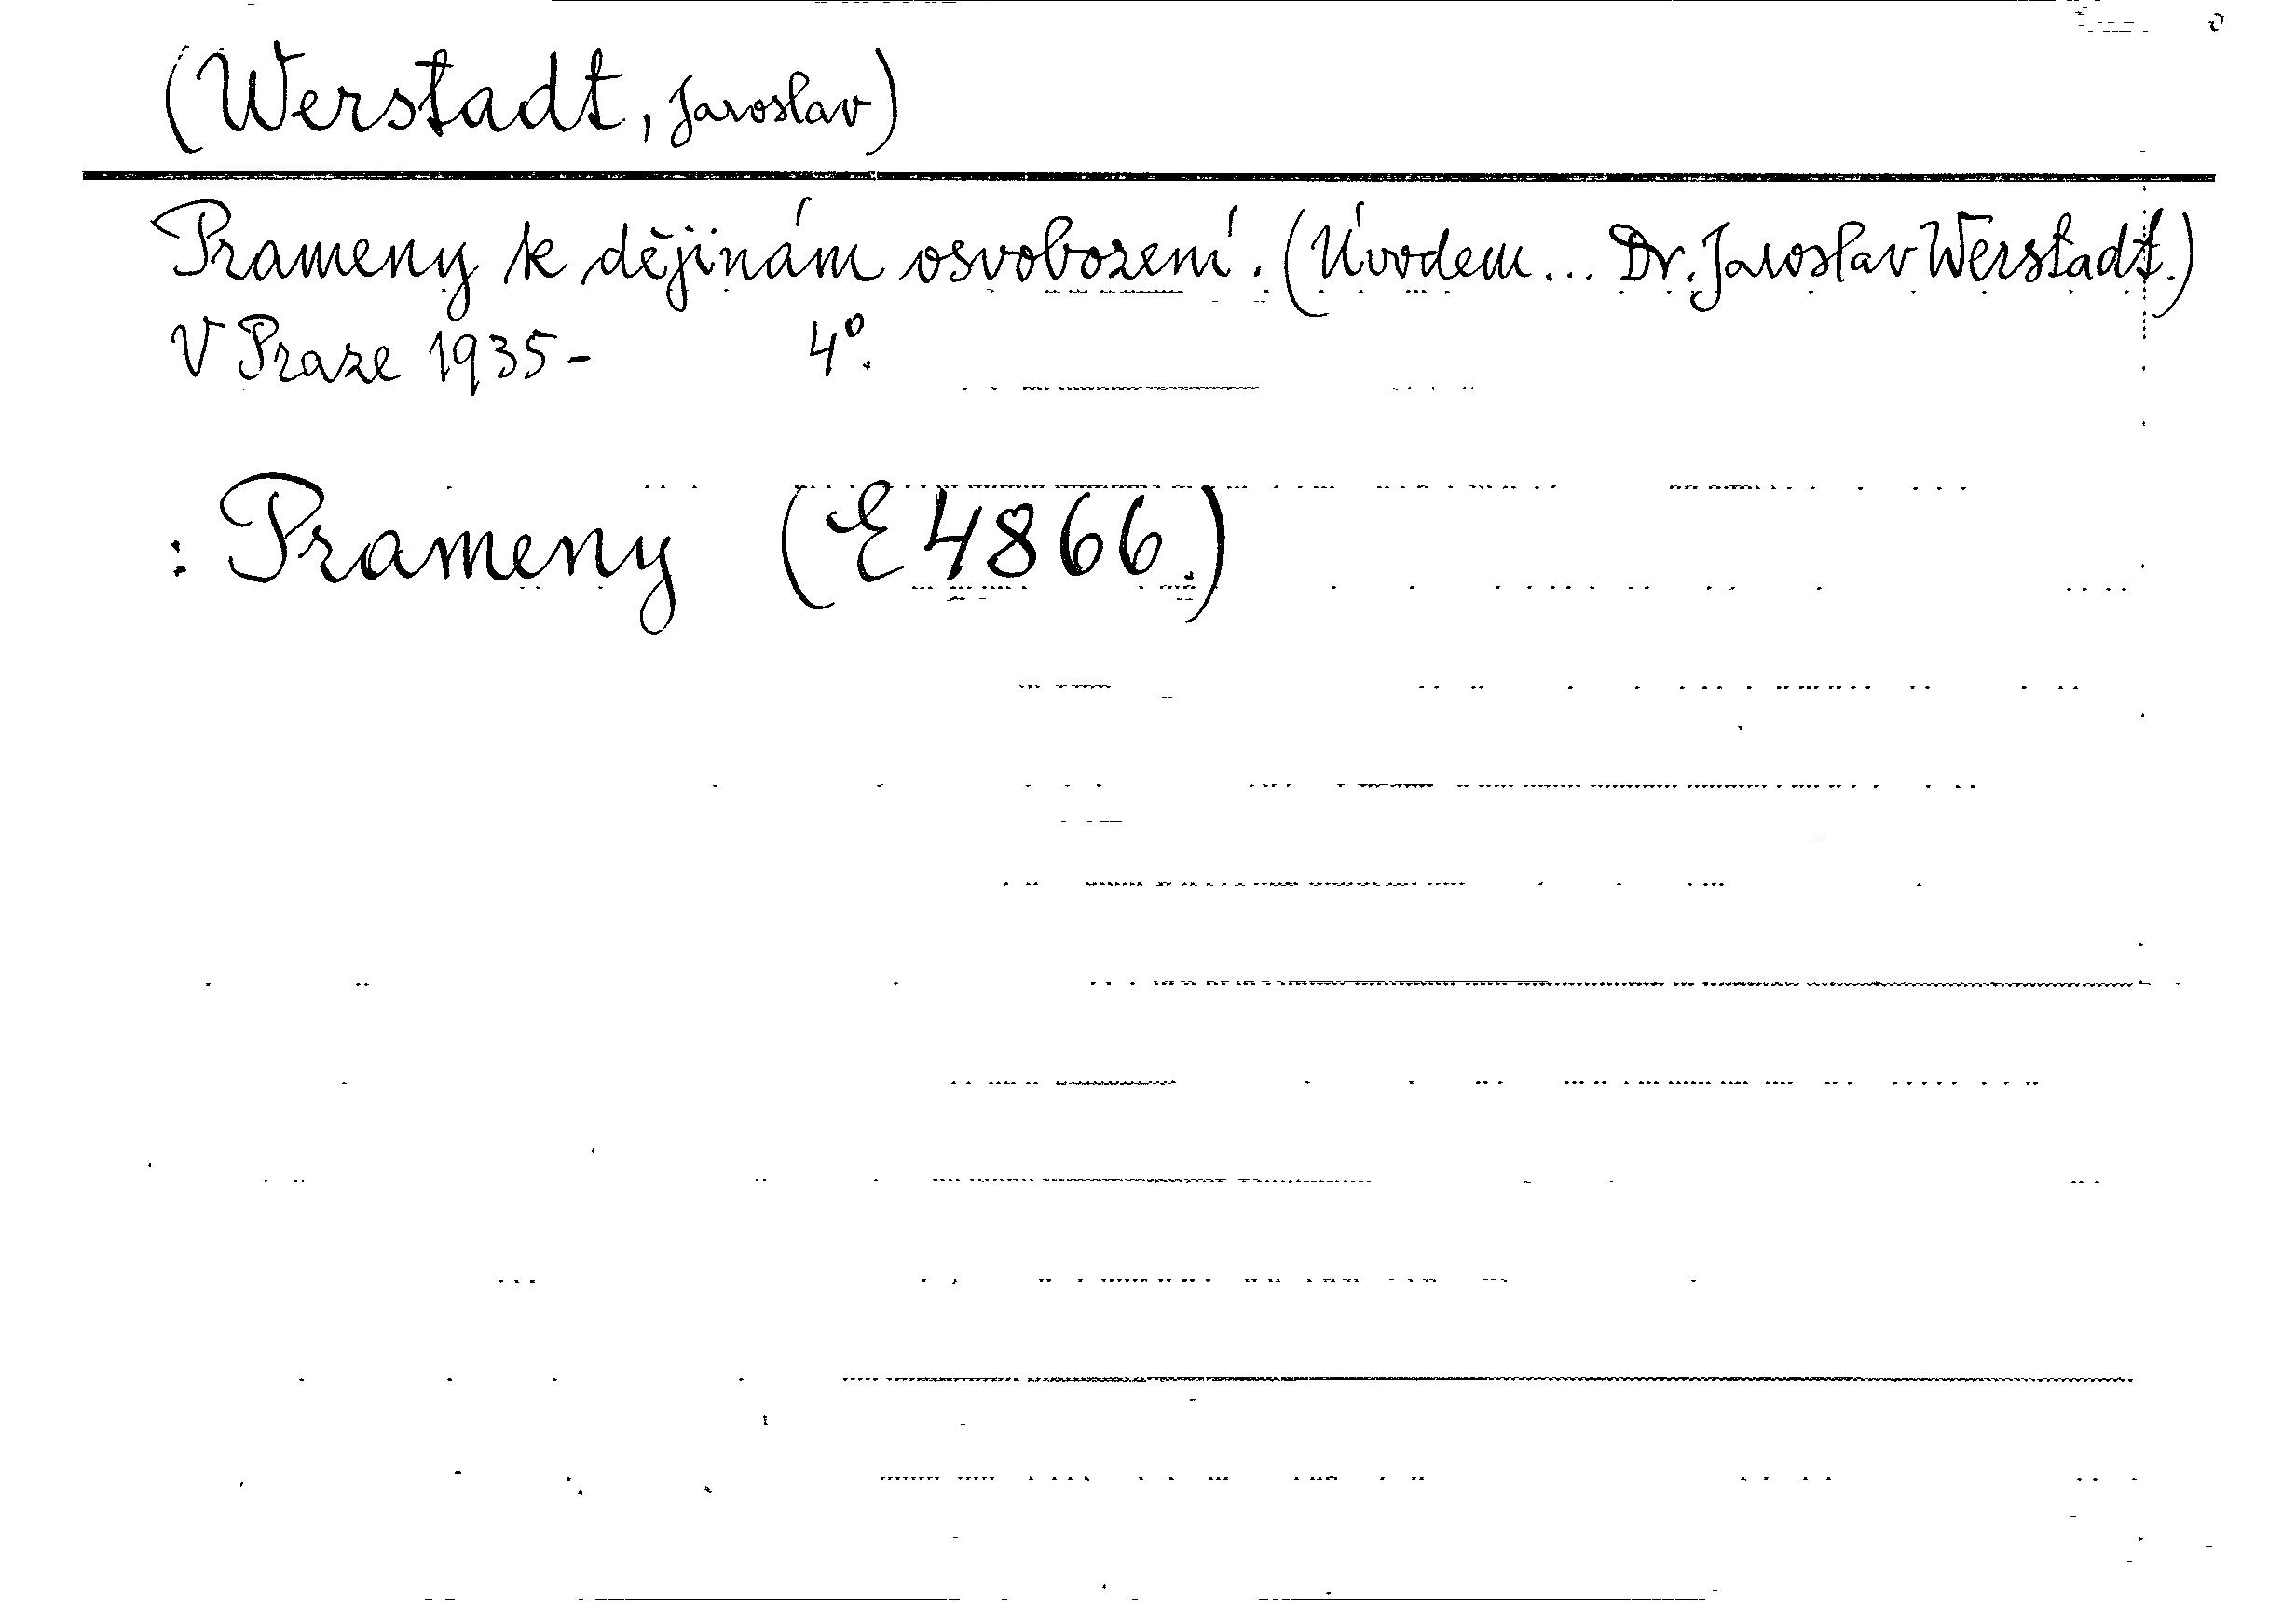 (Werstadt, Jaroslav)
Prameny k dějinám osvobození. (Úvodem... Dr. Jaroslav Werstadt.)
V Praze 1935- 4º.
: Prameny (E 4866.)